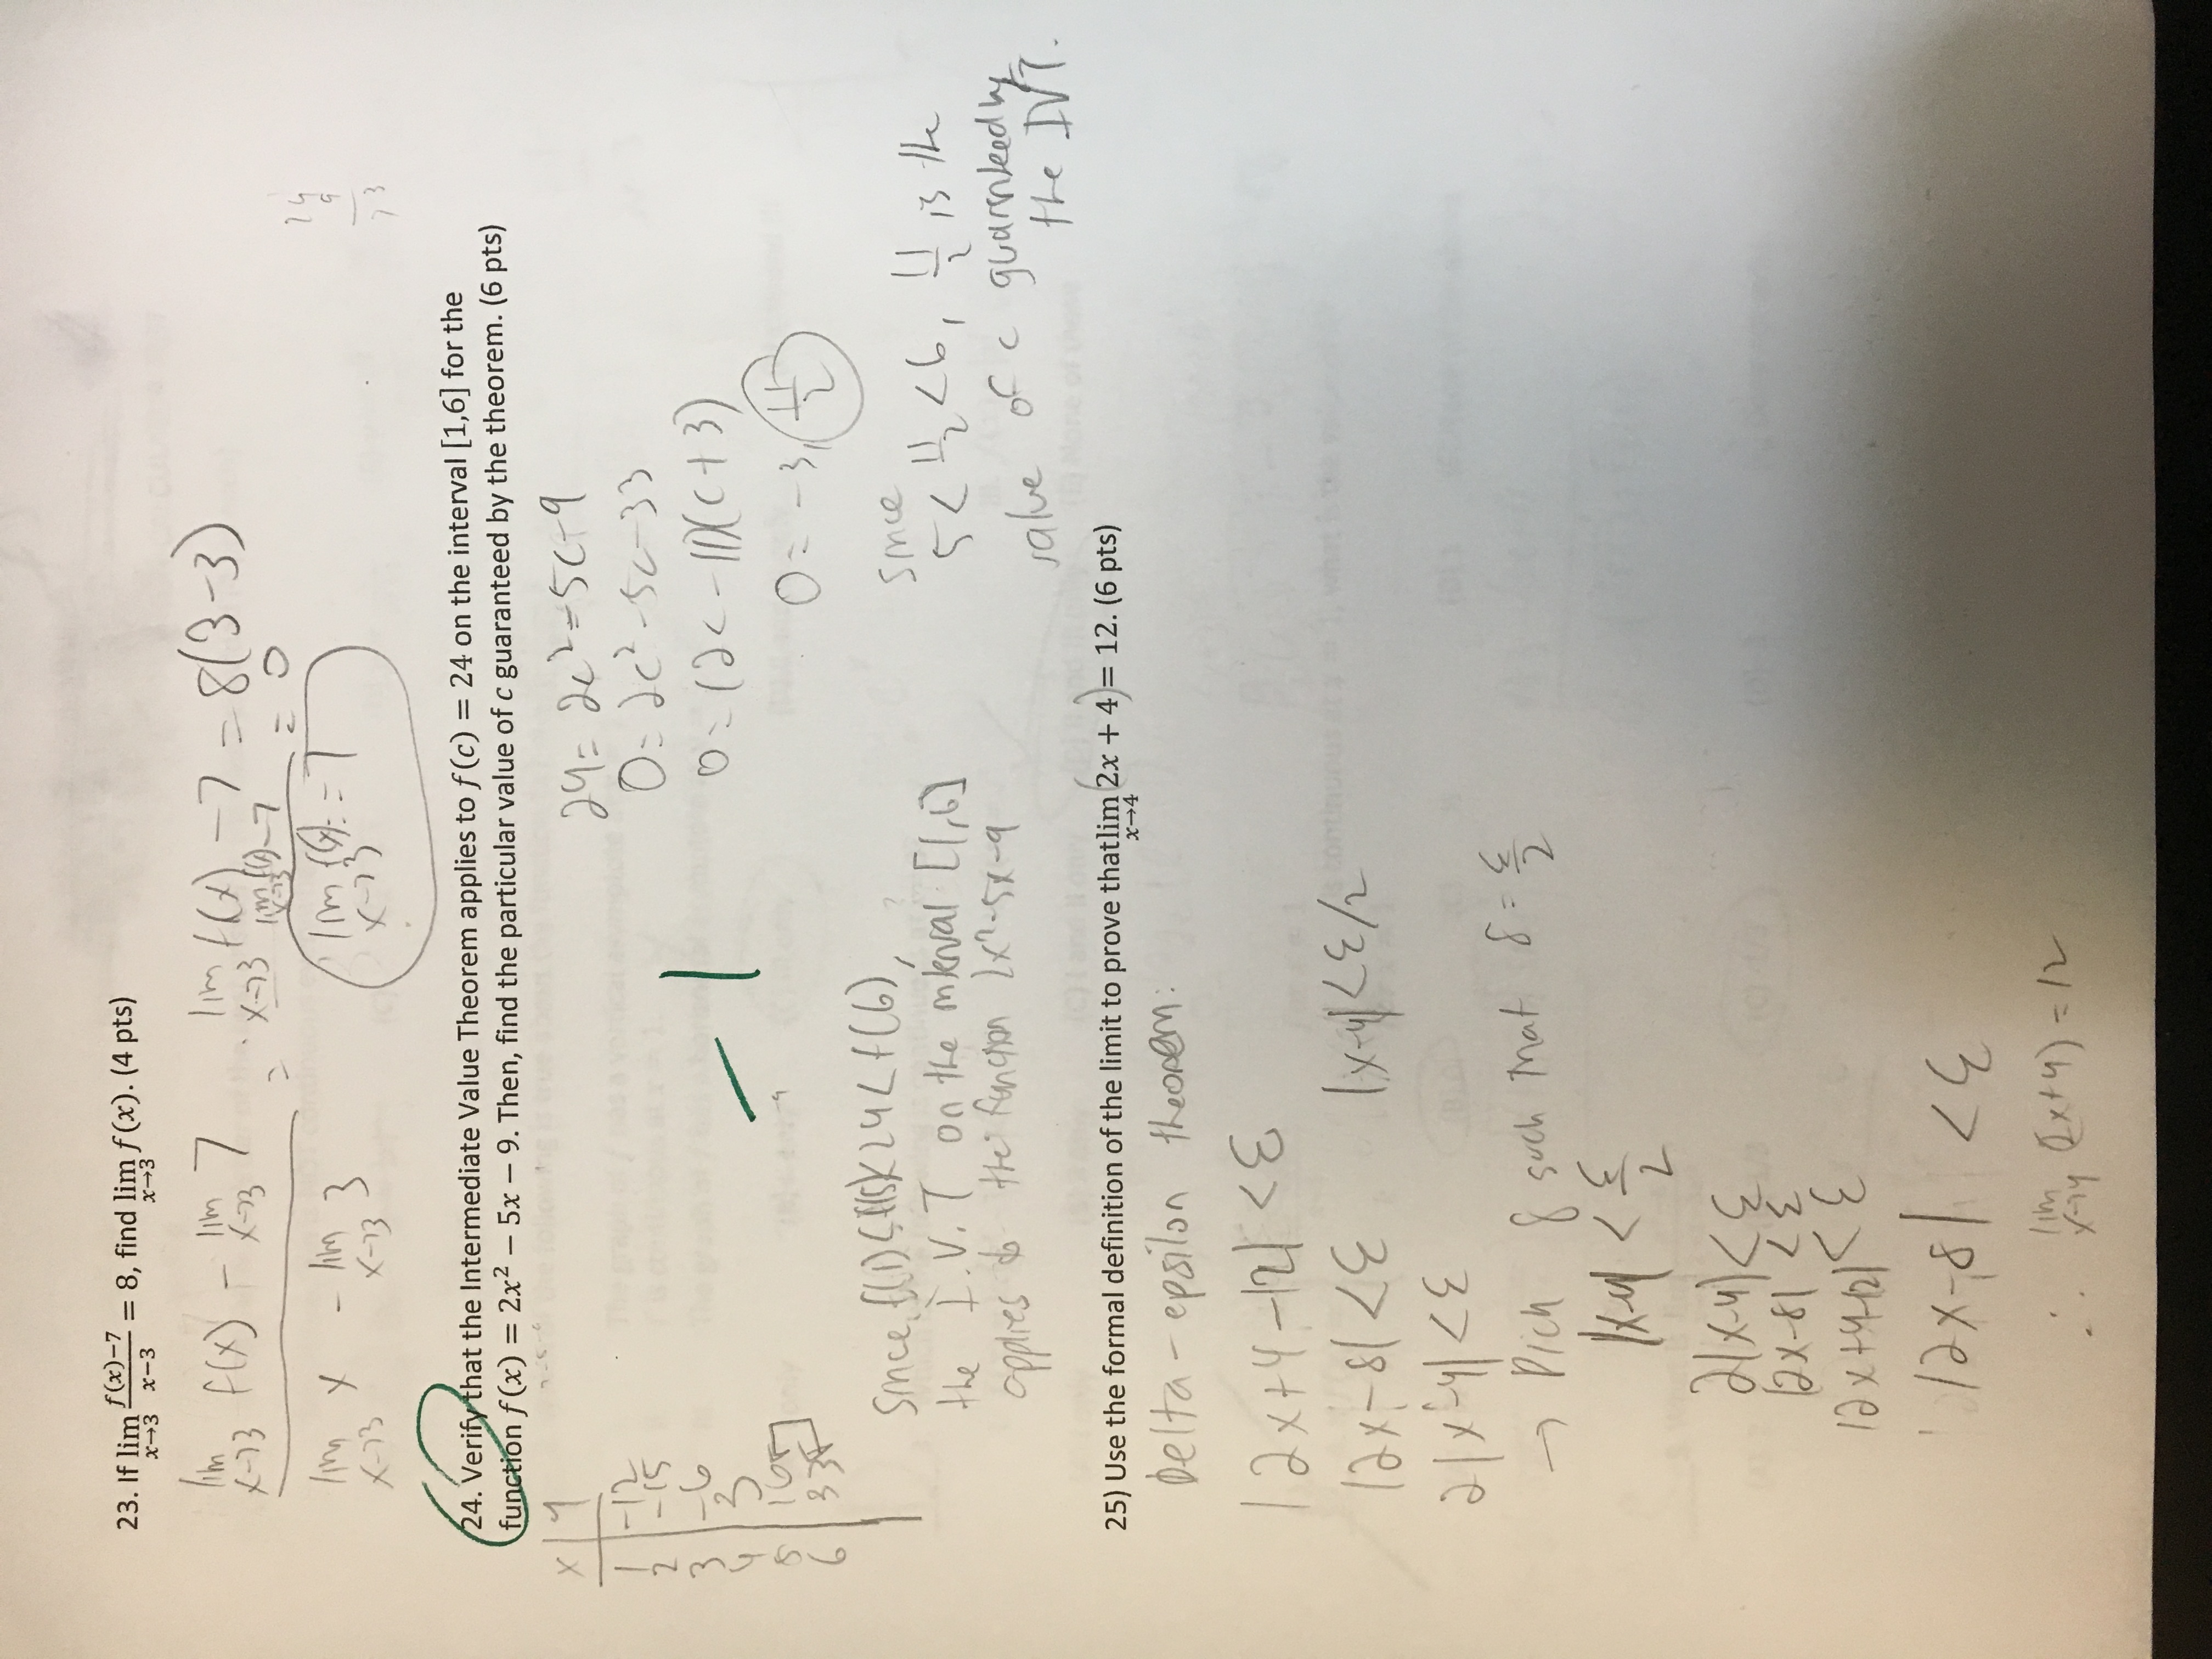 23. If lim x→3 f(x)−7 / x−3 = 8, find lim x→3 f(x). (4 pts)
lim x→3 f(x) − lim x→3 7 / lim x→3 x − lim x→3 3 = lim x→3 f(x) − 7 = 8(3−3)
lim x→3 f(x) −7 = 0
lim x→3 f(x) = 7
24
9
33
24. Verify that the Intermediate Value Theorem applies to f(c) = 24 on the interval [1,6] for the
function f(x) = 2x² − 5x − 9. Then, find the particular value of c guaranteed by the theorem. (6 pts)
x | y
1 | -12
2 | -15
3 | -6
4 | 3
5 | 16
6 | 33
− 1
24 = 2c² − 5c − 9
0 = 2c² − 5c − 33
0 = (2c − 11)(c + 3)
0 = −3, 11/2
Since f(1) < f(5) < 24 < f(6),
the I.V.T on the interval [1,6]
applies to the function 2x²-5x-9
since
5 < 11/2 < 6, 11/2 is the
value of c guarnteed by
the IVT.
25) Use the formal definition of the limit to prove thatlim x→4 (2x + 4) = 12. (6 pts)
Delta - epsilon theorem:
|2x+4−12| < ε
|2x−8| < ε |x−4| < ε/2
2|x−4| < ε
→ Pick δ such that δ = ε/2
|x−4| < ε/2
2|x−4| < ε
|2x−8| < ε
|2x+4−12| < ε
|2x−8| < ε
∴ lim x→4 (2x+4) = 12